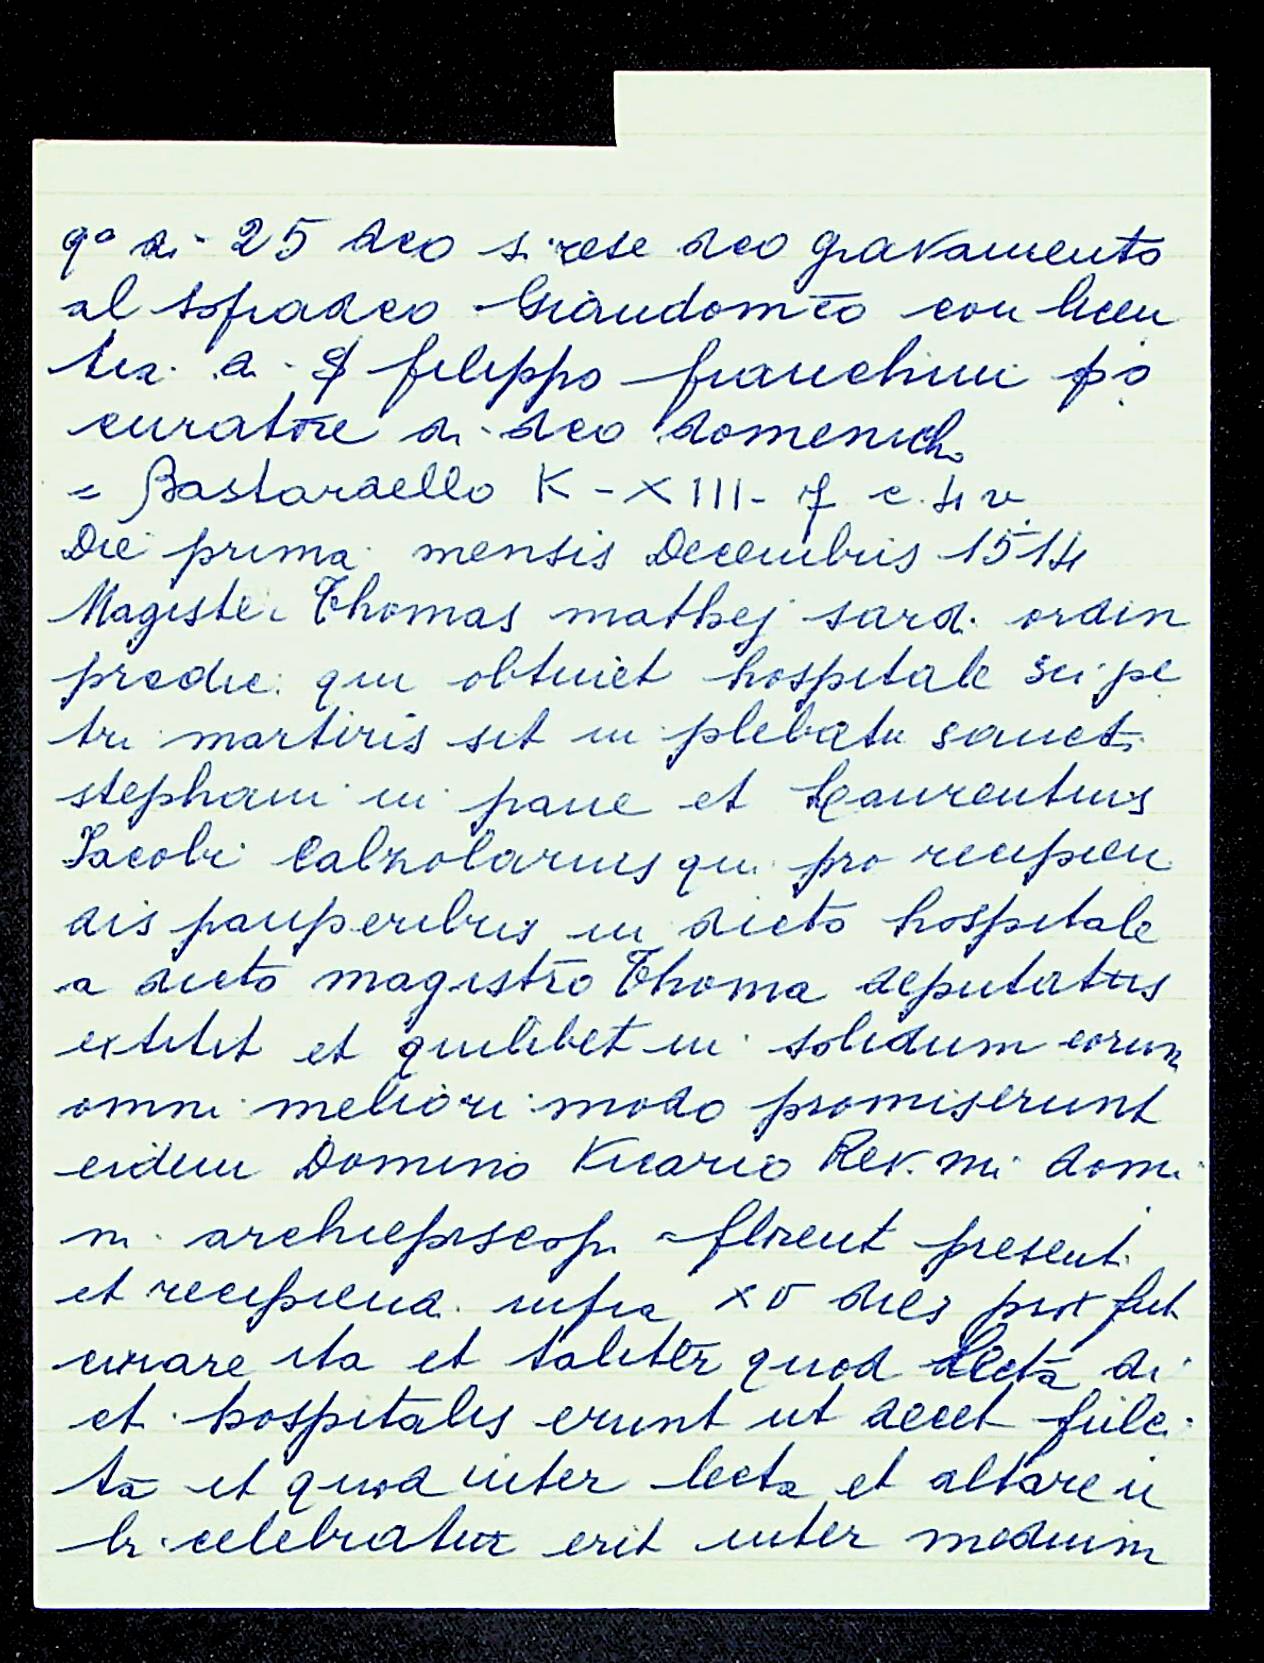 qº di 25 dco si rese dco gravamento
al sopradco Giandomco con licen
tia di S filippo franchini po
curatore di dco domenicho
= Bastardello K - XIII - 7 c. 4 v.
Die prima mensis Decembris 1514
Magister Thomas mathej sard. ordin
predic. qui obtinet hospitale sci pe
tri martiris sit in plebatu sancti
stephani in pane et Laurentius
Jacobi Calzolarius qui pro recipien
dis pauperibus in dicto hospitale
a dicto magistro Thoma deputatus
extitit et quilibet in solidum eorum
omni meliori modo promiserunt
eidem Domino Vicario Rev.mi domi
ni archiepiscopi florent present.
et recipiend. infra XV dies prox fut
curare ita et taliter quod lecta di
ct hospitalis erunt ut decet fulci
ta et quod inter lecta et altare u
bi celebratur erit inter medium